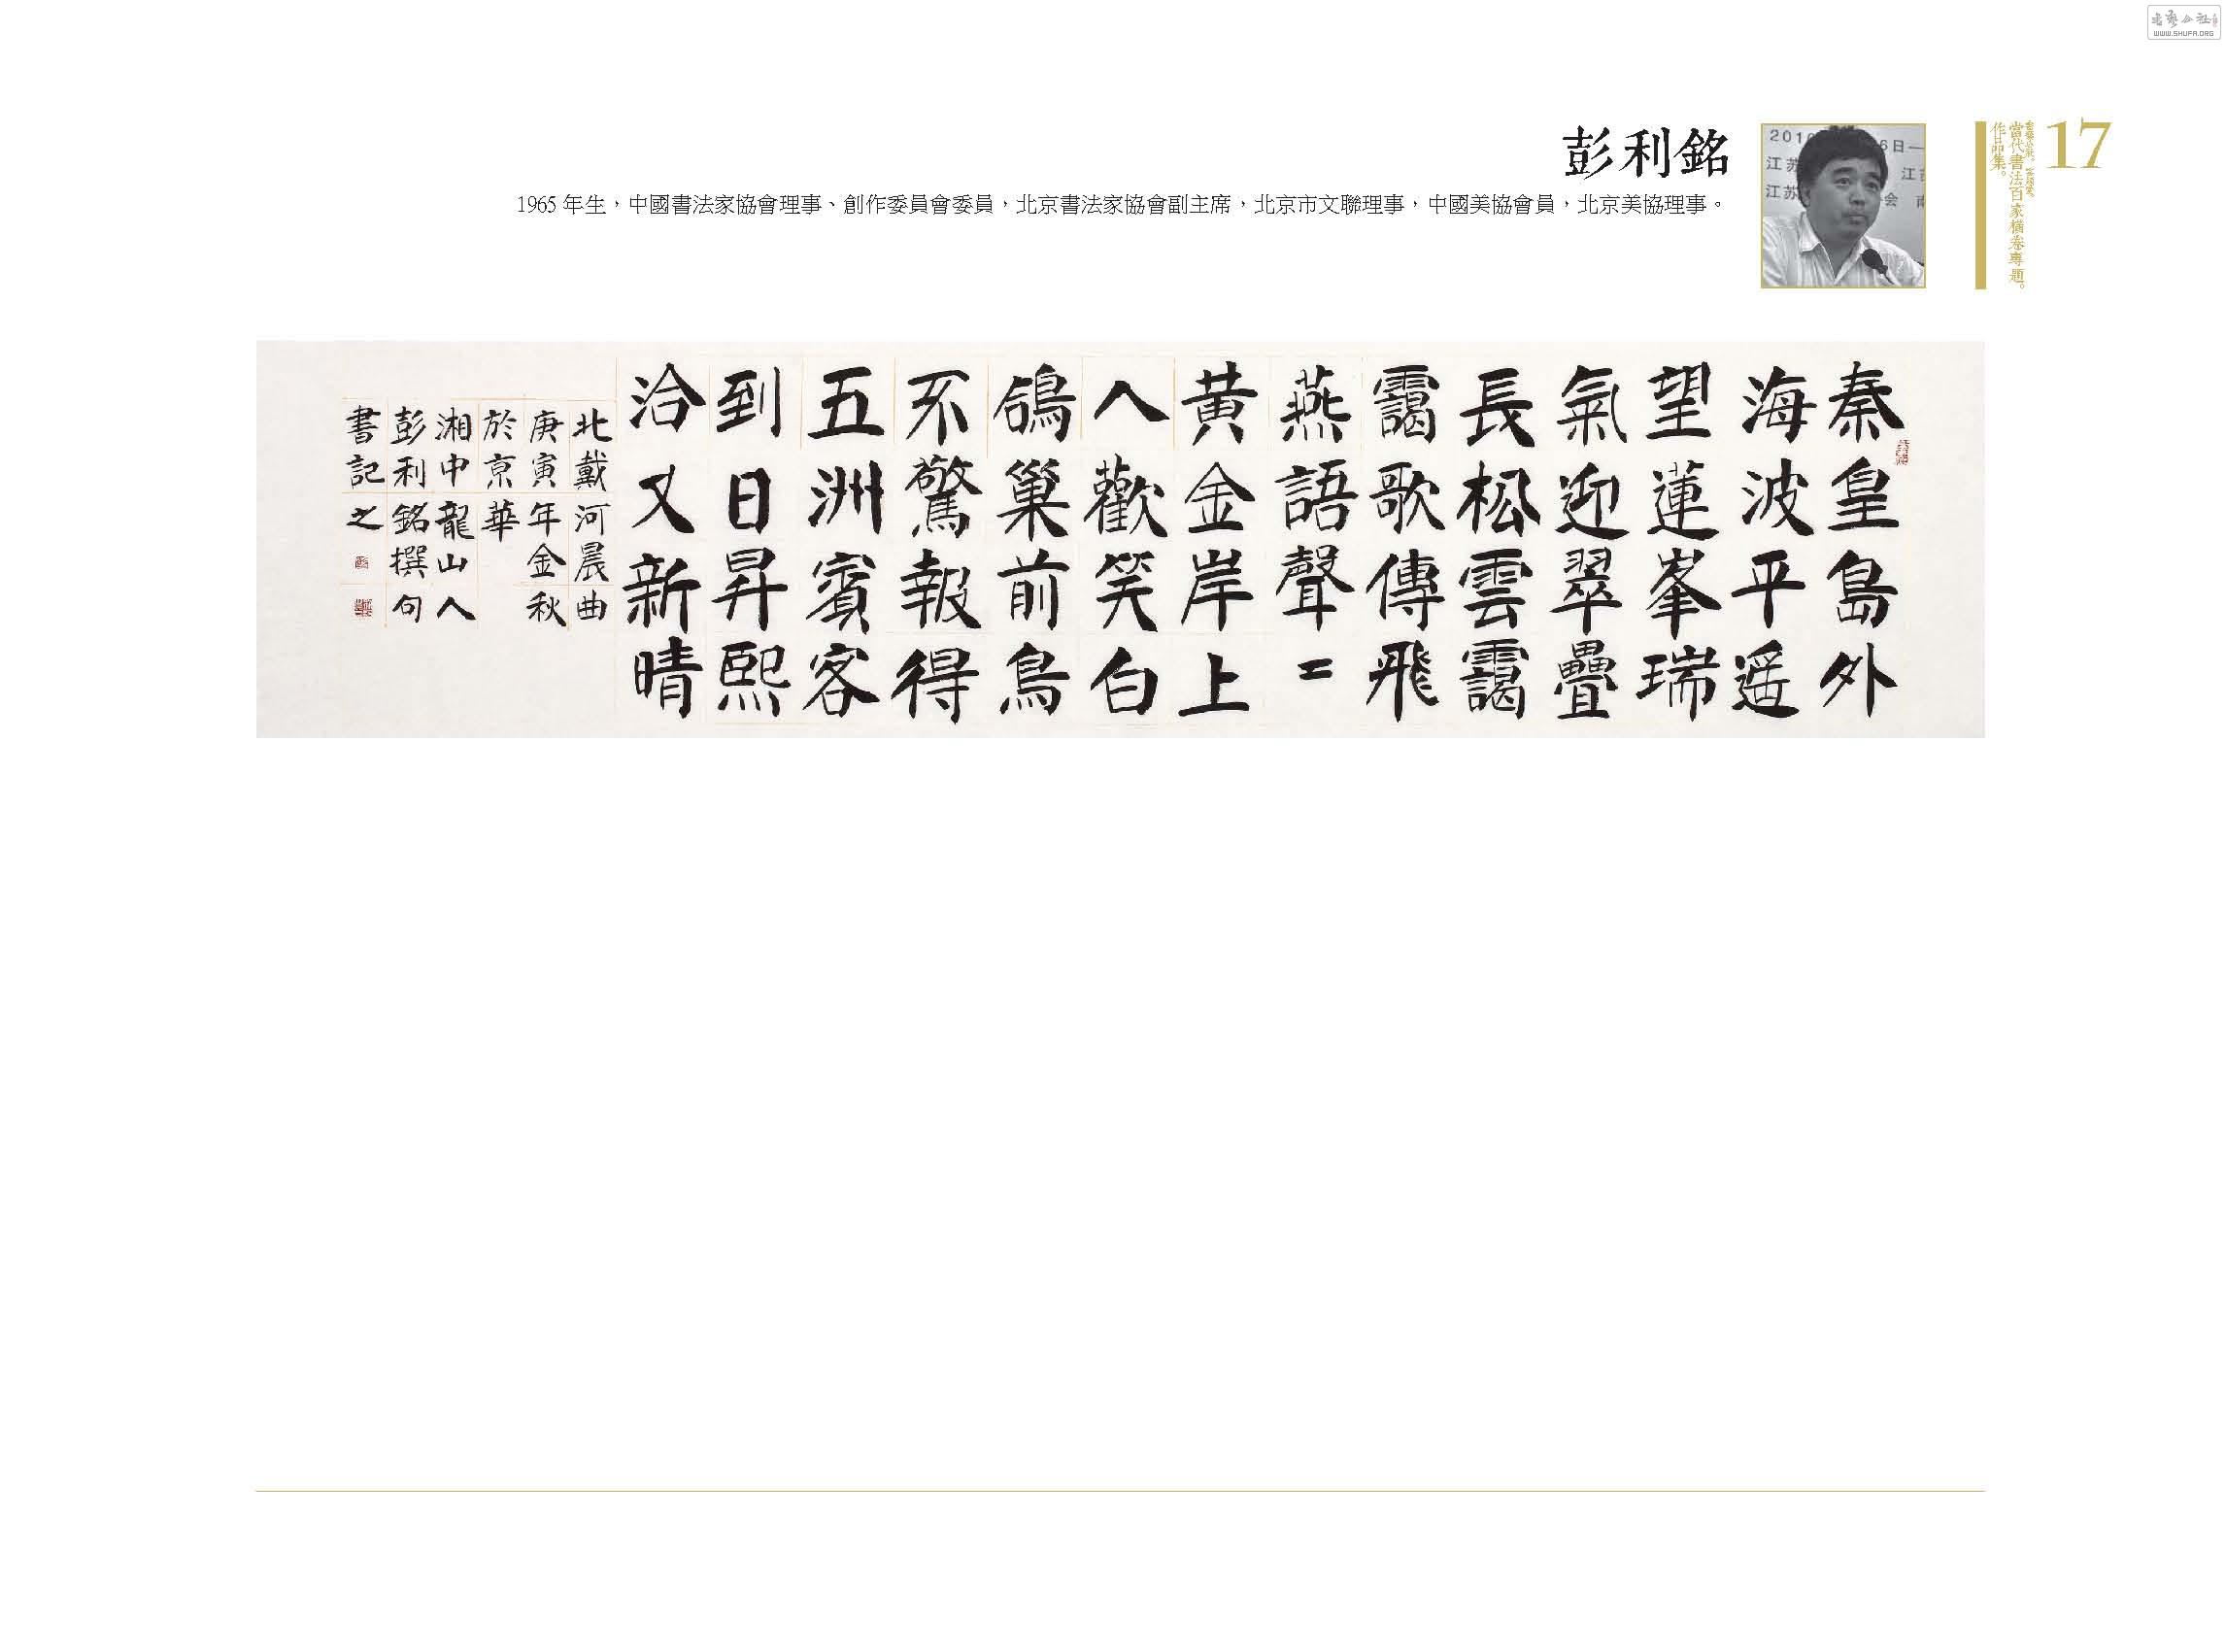 17
當代書法百家橫卷專題。
作品集。
彭利銘
1965 年生，中國書法家協會理事、創作委員會委員，北京書法家協會副主席，北京市文聯理事，中國美協會員，北京美協理事。
2010
6日一
江苏
江苏
江苏
会
秦皇島外
海波平遥
望蓮峯瑞
氣迎翠疊
長松雲靄
靄歌傳飛
燕語聲〓
黄金岸上
人歡笑白
鴿巢前鳥
不驚報得
五洲賓客
到日昇熙
洽又新晴
北戴河晨曲
庚寅年金秋
於京華
湘中龍山人
彭利銘撰句
書記之
WWW.SHUFA.ORG